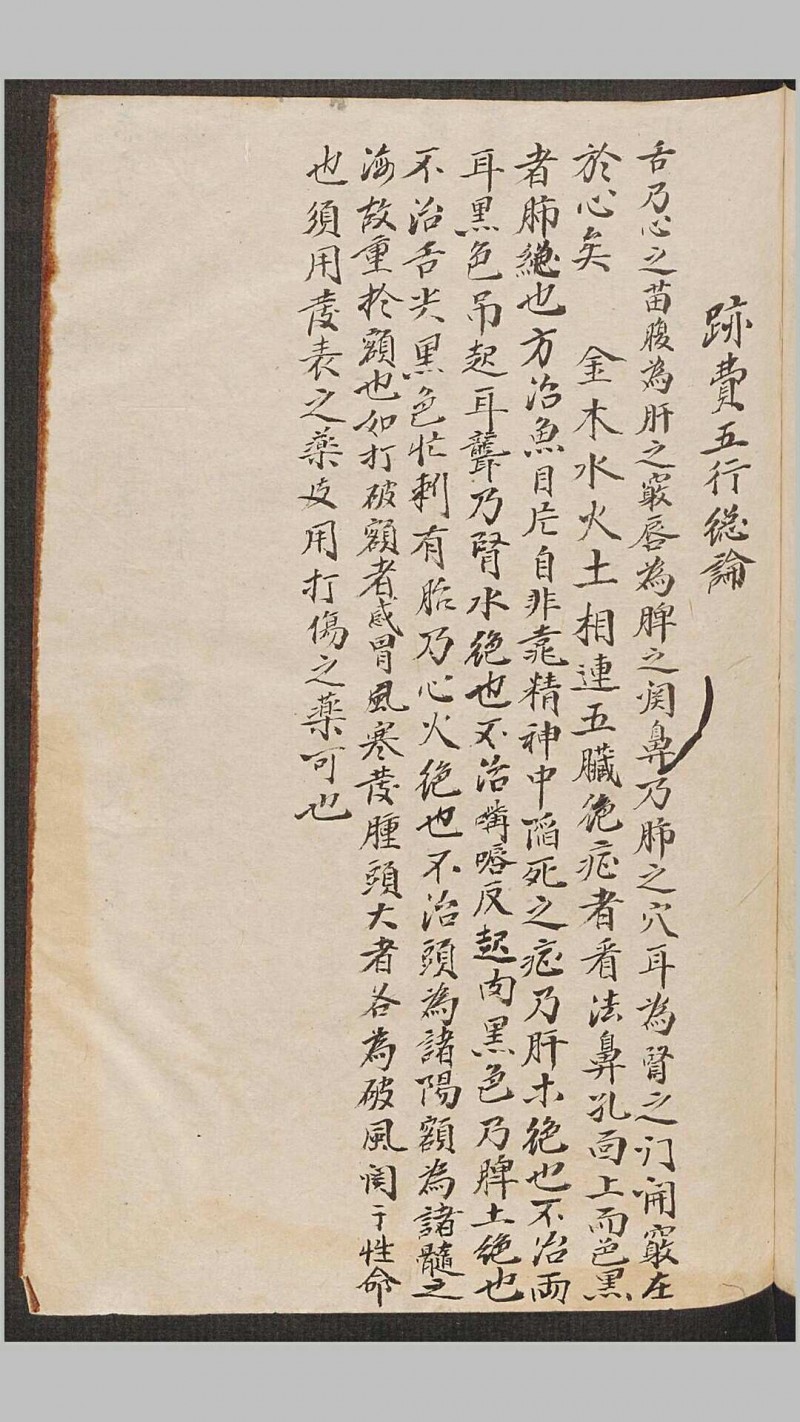 跡費五行総論
舌乃心之苗腹為肝之竅唇為脾之関鼻乃肺之穴耳為腎之门開竅在
於心矣　金木水火土相連五臟絶症者看法鼻孔面上而色黑
者肺絶也方治魚目片自非靠精神中陷死之症乃肝木绝也不治両
耳黑色吊起耳聾乃腎水绝也不治嘴唇反起肉黑色乃脾土绝也
不治舌尖黑色忙刺有胎乃心火绝也不治頭為諸陽額為諸髓之
海故重於額也如打破額者感冒風寒發腫頭大者名為破風関于性命
也須用發表之藥及用打傷之藥可也